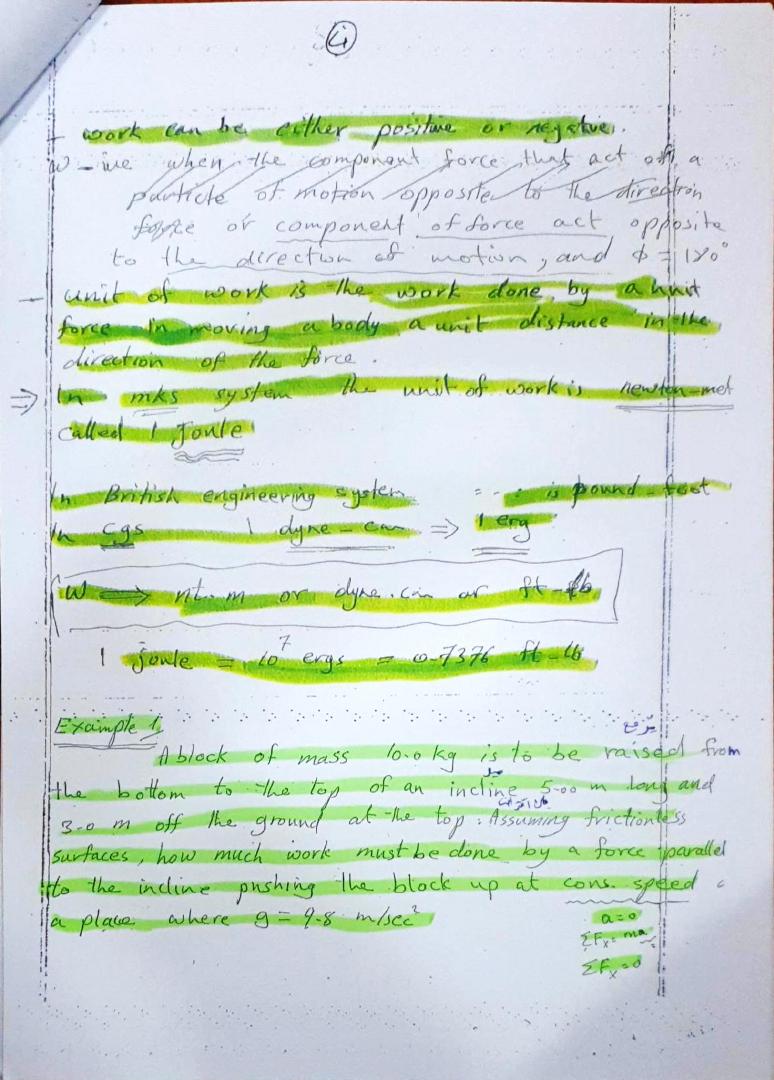 4
- work can be either positive or negative.
W -ive when the component force that act on a
particle of motion opposite to the direction
force or component of force act opposite
to the direction of motion, and ϕ = 180°
- unit of work is the work done by a unit
force in moving a body a unit distance in the
direction of the force.
⇒ In mks system the unit of work is newton-met
called 1 Joule
In British engineering system = - - is pound-foot
In cgs 1 dyne-cm ⇒ 1 erg
W → nt.m or dyne.cm or ft-lb
1 joule = 10⁷ ergs = 0.7376 ft-lb
Example 1,
يرفع
A block of mass 10.0 kg is to be raised from
the bottom to the top of an incline 5.00 m long and
3.0 m off the ground at the top. Assuming frictionless
surfaces, how much work must be done by a force parallel
to the incline pushing the block up at cons. speed
a place where g = 9.8 m/sec²
a=0
ΣFx = ma
ΣFx=0